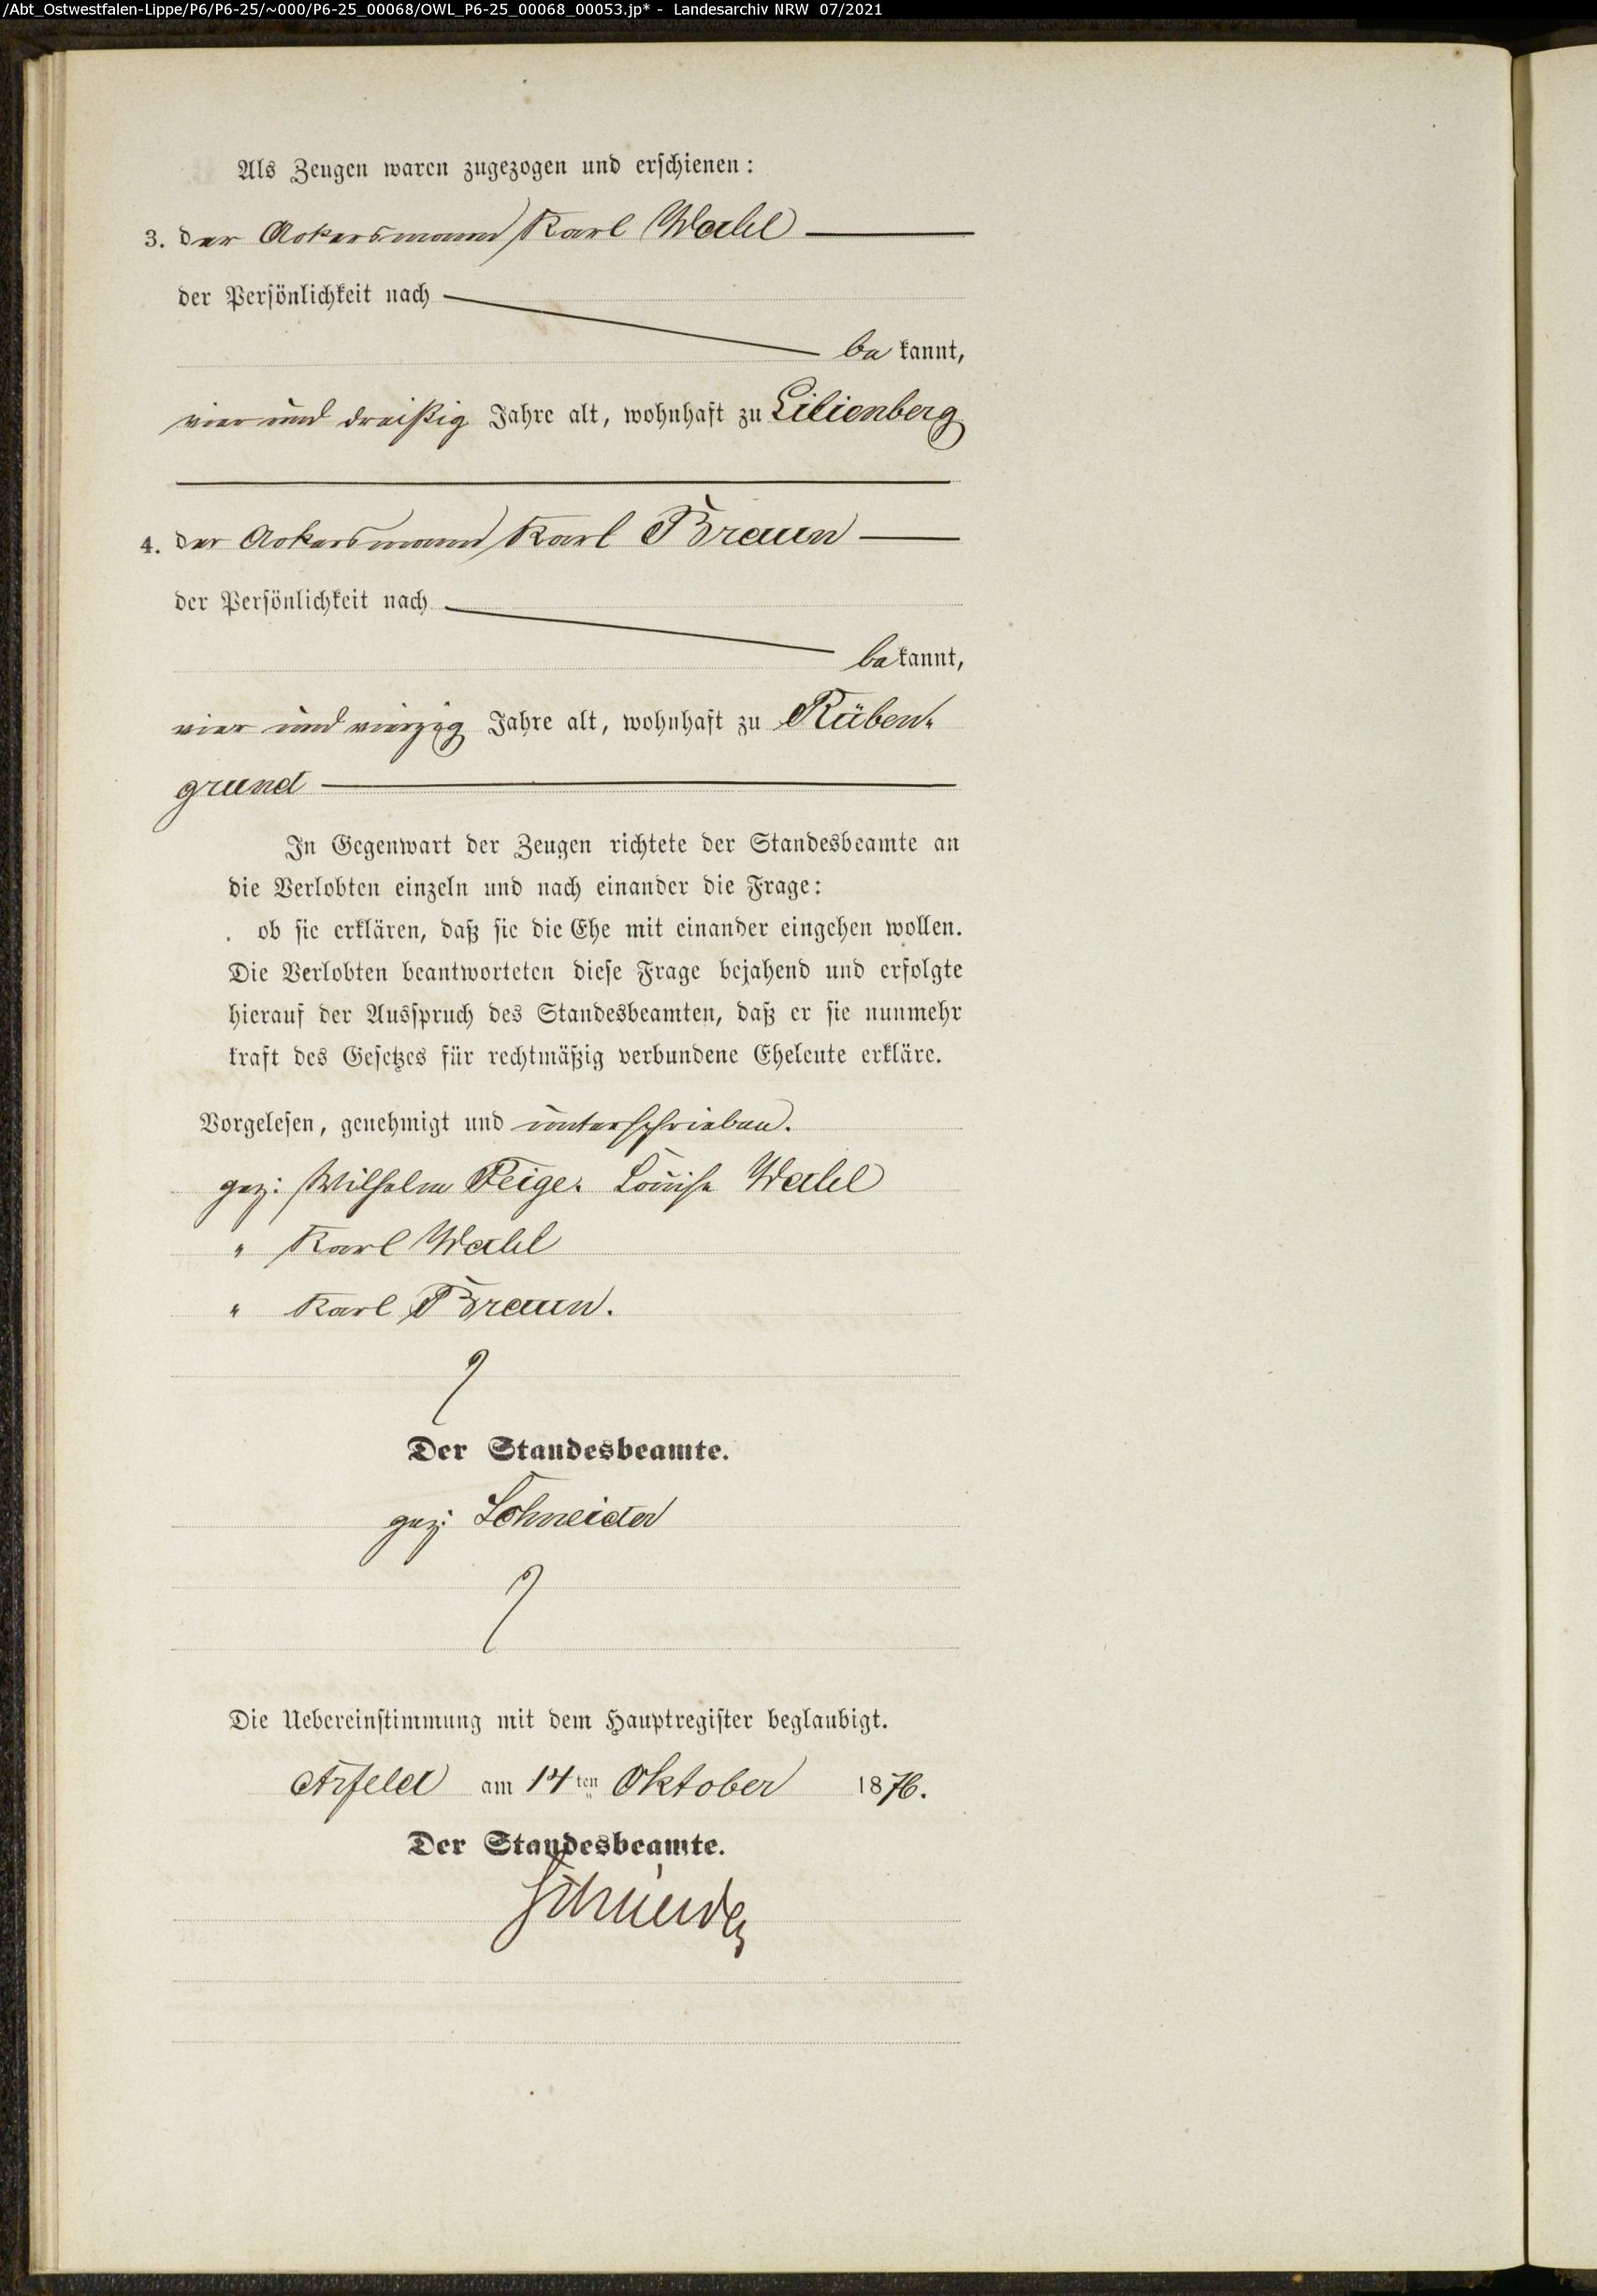 /Abt_Ostwestfalen-Lippe/P6/P6-25/~000/P6-25_00068/OWL_P6-25_00068_00053.jp* - Landesarchiv NRW 07/2021
Als Zeugen waren zugezogen und erschienen:
3. der Ackersmann Karl Wahl
der Persönlichkeit nach
be kannt,
vier und dreißig Jahre alt, wohnhaft zu Lilienberg
4. der Ackersmann Karl Braun
der Persönlichkeit nach
bekannt,
vier und vierzig Jahre alt, wohnhaft zu Rüben-
grund
In Gegenwart der Zeugen richtete der Standesbeamte an
die Verlobten einzeln und nach einander die Frage:
ob sie erklären, daß sie die Ehe mit einander eingehen wollen.
Die Verlobten beantworteten diese Frage bejahend und erfolgte
hierauf der Ausspruch des Standesbeamten, daß er sie nunmehr
kraft des Gesetzes für rechtmäßig verbundene Eheleute erkläre.
Vorgelesen, genehmigt und unterschrieben.
gez: Wilhelm Feige. Louise Wahl
" Karl Wahl
" Karl Braun.
Der Standesbeamte.
gez: Schneider
Die Uebereinstimmung mit dem Hauptregister beglaubigt.
Arfeld am 14ten Oktober 1876.
Der Standesbeamte.
Schneider